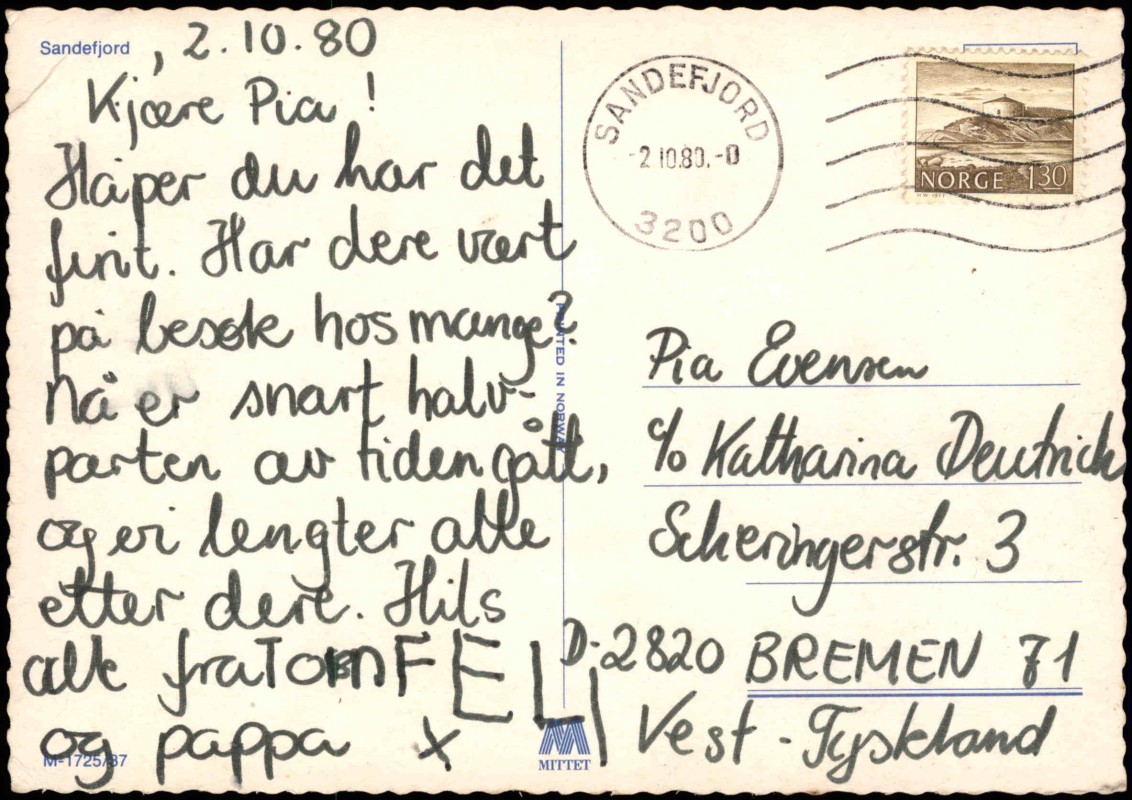 Sandefjord , 2.10.80
Kjære Pia!
Håper du har det
fint. Har dere vært
på besøk hos mange?
Nå er snart halv-
parten av tiden gått,
og vi lengter alle
etter dere. Hils
alle fra Tom FELI
og pappa X
M-1725/87
PRINTED IN NORWAY
MITTET
SANDEFJORD
-2.10.80.-0
3200
NORGE 130
Pia Evensen
c/o Katharina Deutrich
Scheringerstr. 3
D-2820 BREMEN 71
Vest-Tyskland